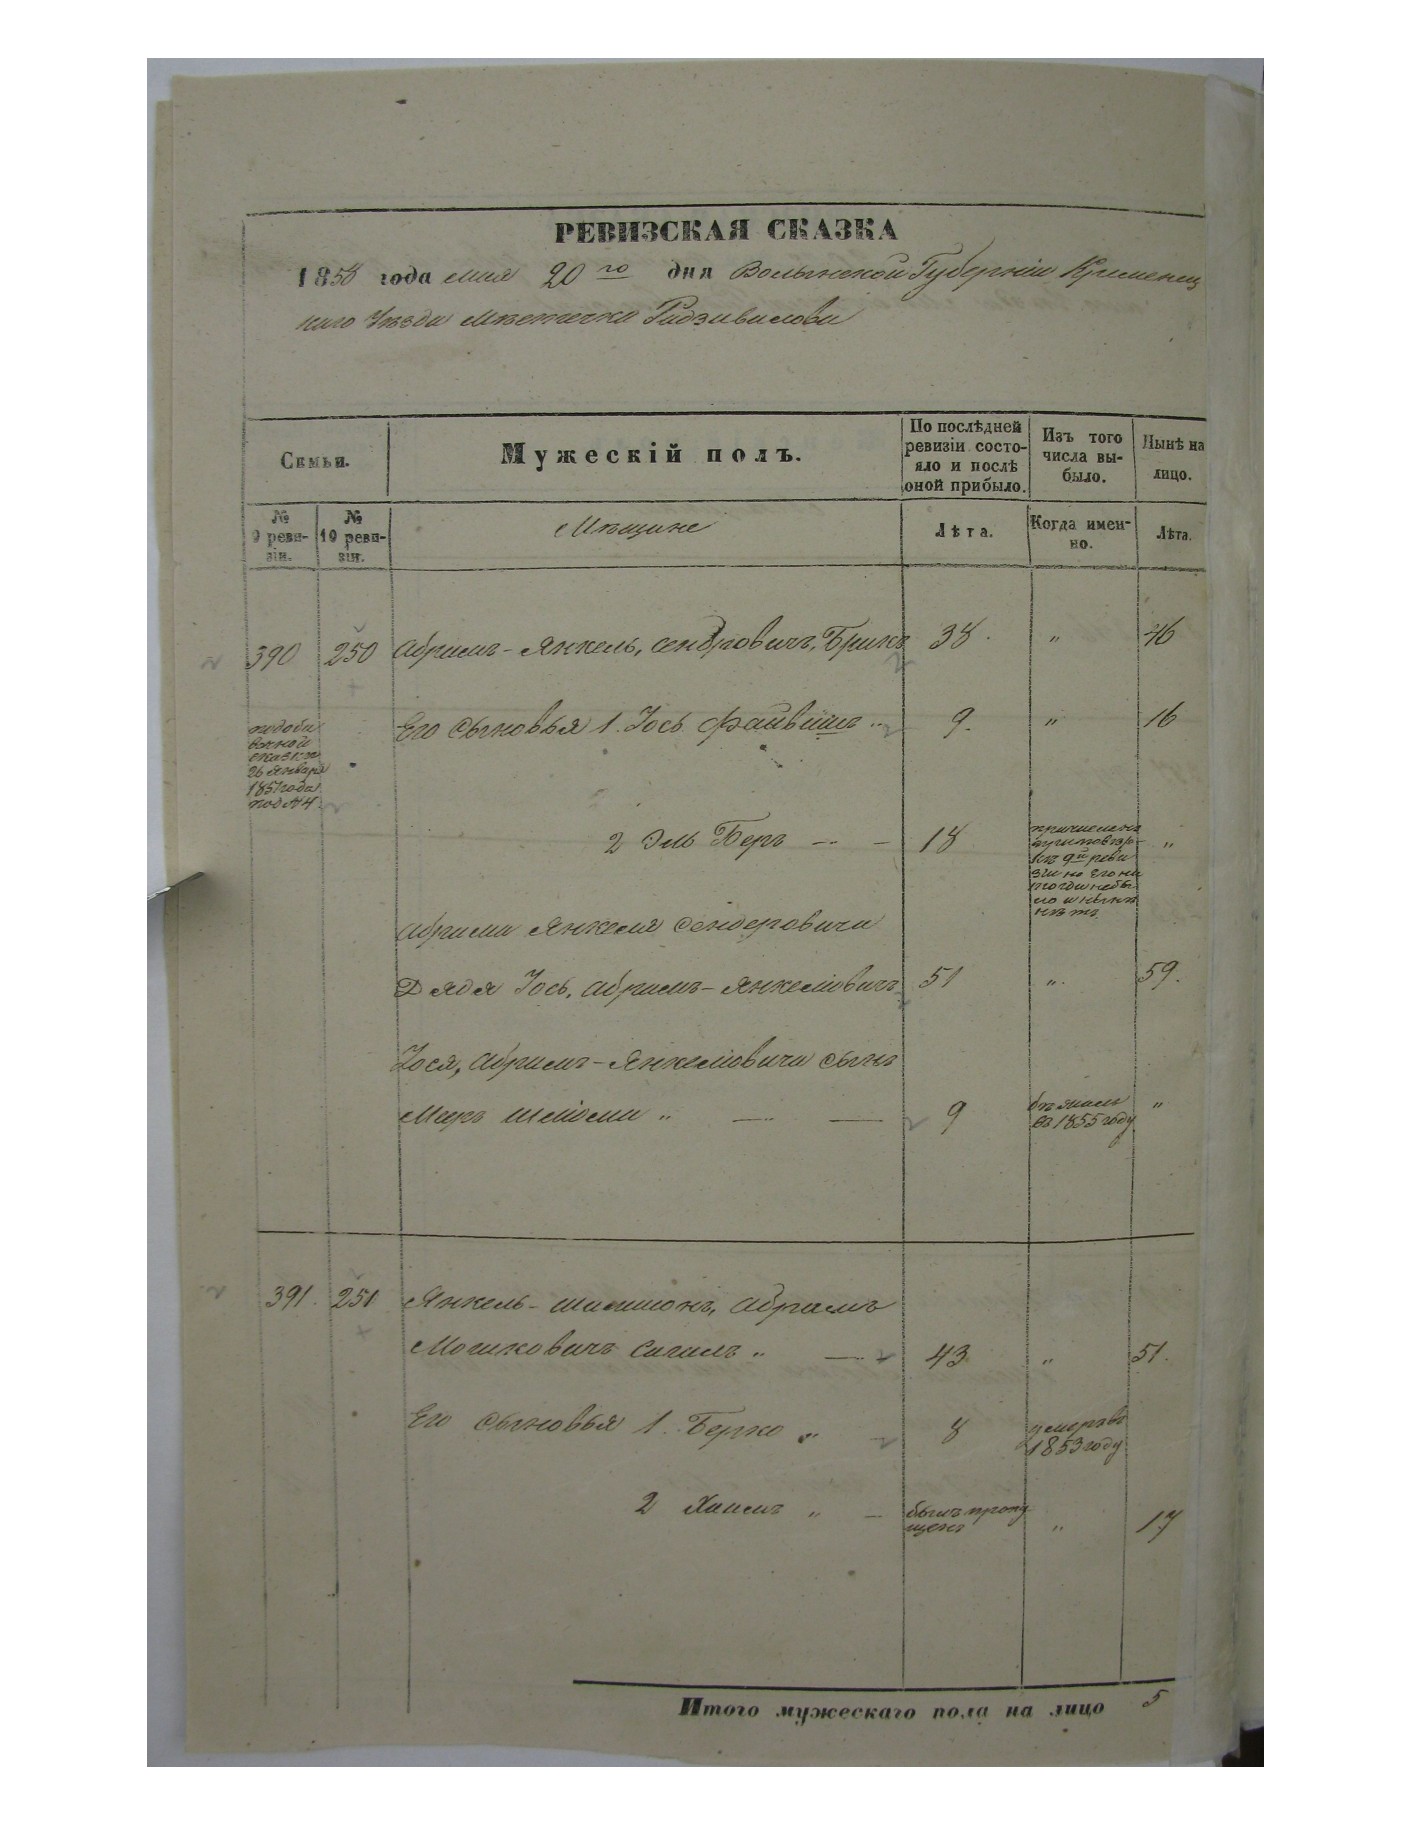 РЕВИЗСКАЯ СКАЗКА
1858 года Мая 20го дня Волынской Губерніи Кременец
каго Уѣзда Мѣстечка Радзивилова
Семьи.
Мужескій полъ.
По послѣдней ревизіи состо-
яло и послѣ
оной прибыло.
Изъ того
числа вы-
было.
Нынѣ на
лицо.
№
9 реви-
зіи.
№
10 реви-
зіи.
Мѣщане
Лѣта.
Когда имен-
но.
Лѣта.
390 250 Абрамъ-Янкель, Сендровичъ, Брикъ 38. " 46
Его Сыновья 1. Іось Файвишъ " 9. " 16
подоба
вочной
сказкѣ
26 Января
1851 года
под №4
2 Эль Беръ — - 18 "
причислен
къ 9й реви
зіи но его ни
тогда небы
ло и нынѣ
нѣтъ
Абрама Янкеля Сендеровича
Дядя Іось, Абрамъ-Янкеліовичъ 51 " 59.
Іося, Абрамъ-Янкеліовича Сынъ
Маръ Шліома " — — 9 бѣжалъ "
въ 1855 году
391. 251 Янкель-Шимшонъ, Абрамъ
Мошковичъ Сигалъ " — 43 " 51.
Его Сыновья 1. Берко " - 8 умеръ въ
1853 году
2 Хаимъ " — былъ пропу
щенъ " 17
Итого мужескаго пола на лицо 5